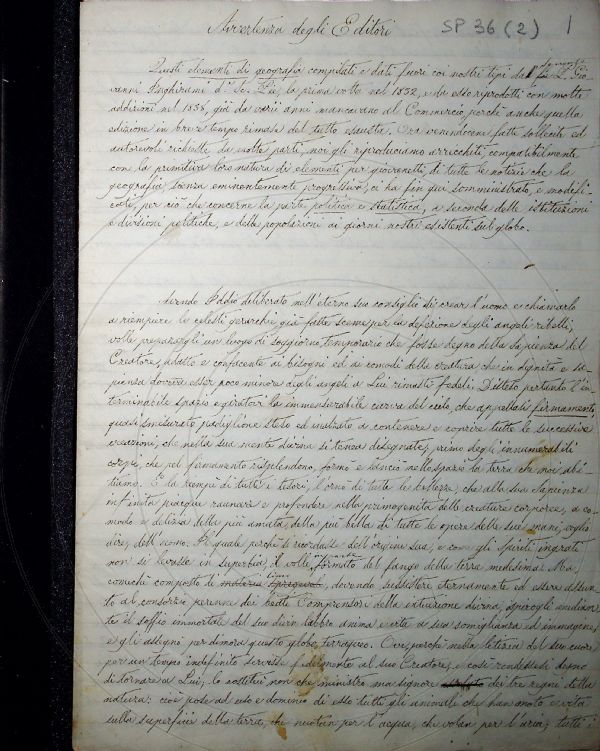 Avvertenza degli Editori
SP 36 (2)
1
Questi elementi di geografia compilati e dati fuori coi nostri tipi dal fu P. Gio-
vanni Inghirami d. Sc. Pie, la prima volta nel 1832, e da esso riprodotti con molte
addizioni nel 1838, già da varii anni mancavano al Commercio, perchè anche quella
edizione in breve tempo rimase del tutto esausta. Ora venendocene fatte sollecite ed
autorevoli richieste da molte parti, noi gli riproduciamo arrecchiti, compatibilmente
con la primitiva loro natura di elementi per giovanetti, di tutte le notizie che la
geografia, scienza eminentemente progressiva, ci ha fin qui somministrato, e modifi-
cati, per ciò che concerne la parte politica e statistica, a seconda delle istituzioni
e divisioni politiche, e delle popolazioni ai giorni nostri esistenti sul globo.
Avendo Iddio deliberato nell'eterno suo consiglio di crear l'uomo e chiamarlo
a riempire le celesti gerarchie già fatte sceme per la defezione degli angeli ribelli,
volle preparargli un luogo di soggiorno temporario che fosse degno della sapienza del
Creatore, adatto e confacente ai bisogni ed ai comodi della creatura che in dignità e sa-
pienza dovea esser poco minore degli angeli a Lui rimasti fedeli. Disteso pertanto l'in-
terminabile spazio e giratavi la immensurabile curva del cielo, che appellasi firmamento,
quasi smisurato padiglione steso ed inalzato a contenere e coprire tutte le successive
creazioni, che nella sua mente divina si tenea disegnate, primo degli innumerabili
corpi, che pel firmamento risplendono, formò e lanciò nello spazio la terra che noi abi-
tiamo. E la riempì di tutti i tesori, l'ornò di tutte le bellezze, che alla sua sapienza
infinita piacque raunare e profondere nella primogenita delle creature corporee, a co-
modo e delizia della più amata, della più bella di tutte le opere delle sue mani, voglio
dire, dell'uomo. Il quale perchè si ricordasse dell'origine sua, e con gli spiriti ingrati
non si levasse in superbia, il volle formato del fango della terra medesima. Ma
comechè composto di materia, dovendo sussistere eternamente ed essere assun-
to al consorzio perenne dei beati Comprensori della intuizione divina, spirogli median-
te il soffio immortale del suo divin labbro anima e vita a sua somiglianza ed immagine,
e gli assegnò per dimora questo globo terraqueo. Ove, perchè nella letizia del suo cuore
per un tempo indefinito servisse fidelmente al suo Creatore, e così rendessesi degno
di tornare a Lui, lo costituì non che ministro ma signore dei tre regni della
natura: cioè pose ad uso e dominio di esso tutti gli animali che han moto e vita
sulla superficie della terra, che nuotan per l'acqua, che volan per l'aria; tutti i